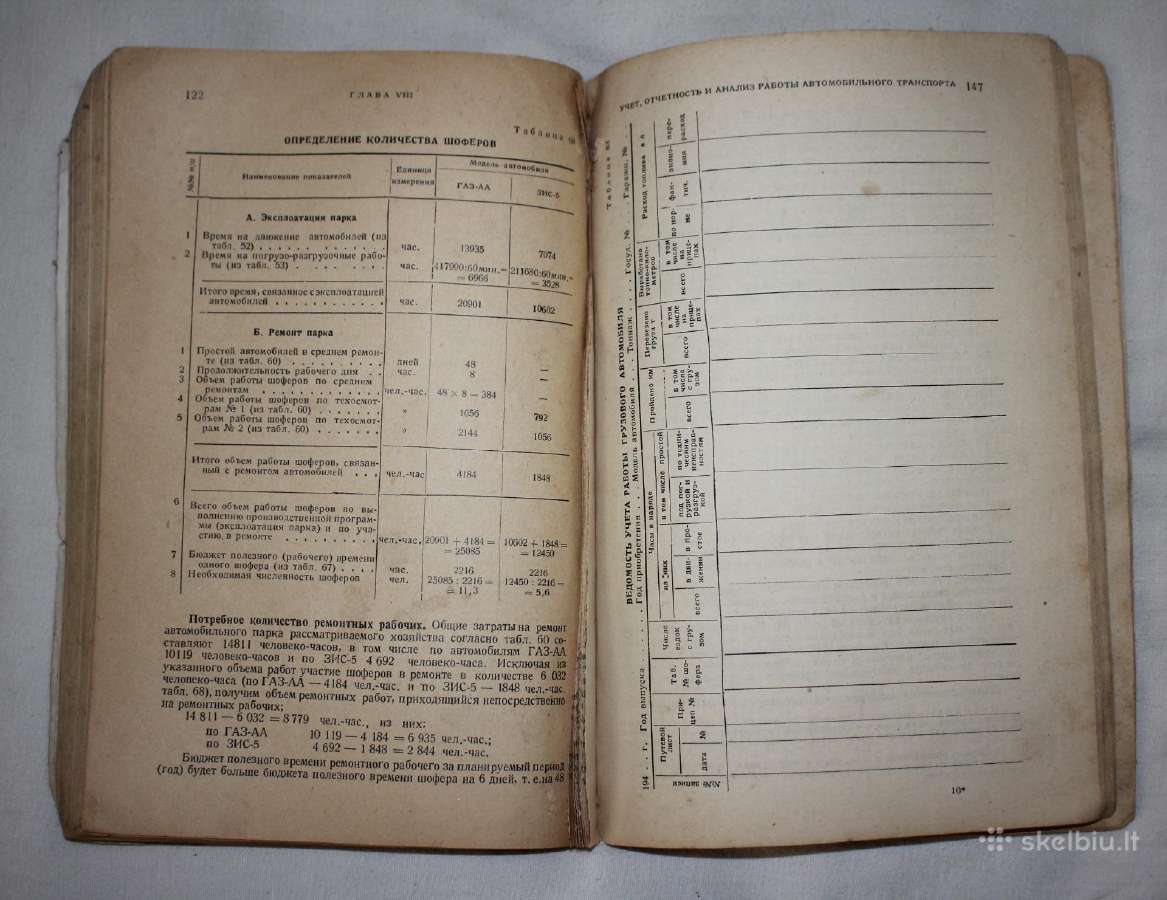 122
ГЛАВА VIII
Таблица
ОПРЕДЕЛЕНИЕ КОЛИЧЕСТВА ШОФЕРОВ
№№ п/п
Наименование показателей
Единица измерения
Модель автомобиля
ГАЗ-АА
ЗИС-5
А. Эксплоатация парка
1 Время на движение автомобилей (из
табл. 52) . . . . . . . . . . час. 13935 7074
2 Время на погрузо-разгрузочные рабо-
ты (из табл. 53) . . . . . . . час. 417990:60мин.= 211680:60мин.=
= 6966 = 3528
Итого время, связанное с эксплоатацией
автомобилей . . . . . . . . . . час. 20901 10602
Б. Ремонт парка
1 Простой автомобилей в среднем ремон-
те (из табл. 60) . . . . . . . . дней 48 —
2 Продолжительность рабочего дня . . час. 8 —
3 Объем работы шоферов по средним
ремонтам . . . . . . . . . . чел.-час. 48 × 8 = 384 —
4 Объем работы шоферов по техосмот-
рам № 1 (из табл. 60) . . . . . . . " 1656 792
5 Объем работы шоферов по техосмот-
рам № 2 (из табл. 60) . . . . . . . " 2144 1056
Итого объем работы шоферов, связан-
ный с ремонтом автомобилей . . . чел.-час 4184 1848
6 Всего объем работы шоферов по вы-
полнению производственной програм-
мы (эксплоатация парка) и по уча-
стию в ремонте . . . . . . . . . . чел.-час. 20901 + 4184 = 10602 + 1848 =
= 25085 = 12450
7 Бюджет полезного (рабочего) времени
одного шофера (из табл. 67) . . . . час. 2216 2216
8 Необходимая численность шоферов чел. 25085 : 2216 = 12450 : 2216 =
= 11,3 = 5,6
Потребное количество ремонтных рабочих. Общие затраты на ремонт
автомобильного парка рассматриваемого хозяйства согласно табл. 60 со-
ставляют 14811 человеко-часов, в том числе по автомобилям ГАЗ-АА
10119 человеко-часов и по ЗИС-5 4 692 человеко-часа. Исключая из
указанного объема работ участие шоферов в ремонте в количестве 6 032
человеко-часа (по ГАЗ-АА — 4184 чел.-час. и по ЗИС-5 — 1848 чел.-час.
табл. 68), получим объем ремонтных работ, приходящийся непосредственно
на ремонтных рабочих;
14 811 — 6 032 = 8 779 чел.-час., из них:
по ГАЗ-АА 10 119 — 4 184 = 6 935 чел.-час.;
по ЗИС-5 4 692 — 1 848 = 2 844 чел.-час.
Бюджет полезного времени ремонтного рабочего за планируемый период
(год) будет больше бюджета полезного времени шофера на 6 дней, т. е. на 48
УЧЕТ, ОТЧЕТНОСТЬ И АНАЛИЗ РАБОТЫ АВТОМОБИЛЬНОГО ТРАНСПОРТА 147
Таблица
ВЕДОМОСТЬ УЧЕТА РАБОТЫ ГРУЗОВОГО АВТОМОБИЛЯ
194 . . г. Год выпуска . . . . . Год приобретения . . . Модель автомобиля . . . . Тоннаж . . . . Госуд. № . . . . Гаражн. № . .
№№ записи
Путевой лист
дата
№
При-
цеп №
Таб.
№ шо-
фера
Число
ездок
с гру-
зом
Часы в наряде
всего
из них
в дви-
жении
в про-
стое
в том числе простой
под пог-
рузкой и
разгруз-
кой
по техни-
ческим
неисправ-
ностям
Пройдено км
всего
в том
числе
с гру-
зом
Перевезено
груза т
всего
в том
числе
на
прице-
пах
Выработано
тонно-кило-
метров
всего
в том
числе
на
прице-
пах
Расход топлива в л
по нор-
ме
фак-
тич.
эконо-
мия
пере-
расход
10*
skelbiu.lt